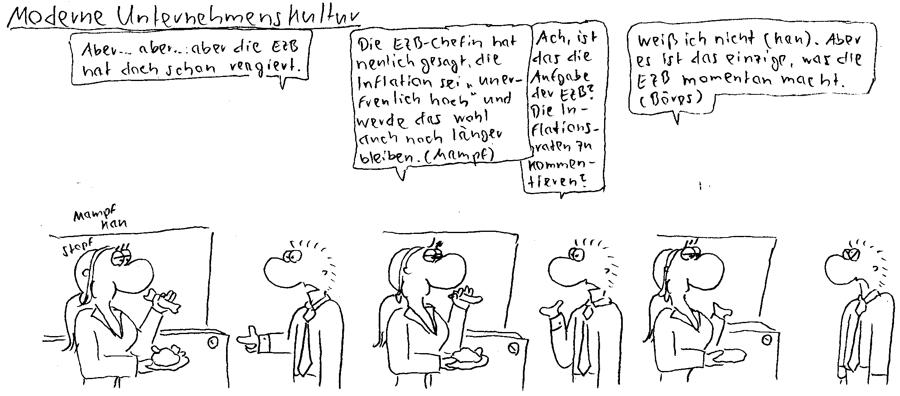 Moderne Unternehmenskultur
Aber... aber... aber die EZB
hat doch schon reagiert.
Mampf
kau
Stopf
Die EZB-Chefin hat
neulich gesagt, die
Inflation sei „uner-
freulich hoch" und
werde das wohl
auch noch länger
bleiben. (Mampf)
Ach, ist
das die
Aufgabe
der EZB?
Die In-
flations-
raten zu
kommen-
tieren?
weiß ich nicht (kau). Aber
es ist das einzige, was die
EZB momentan macht.
(Börps)